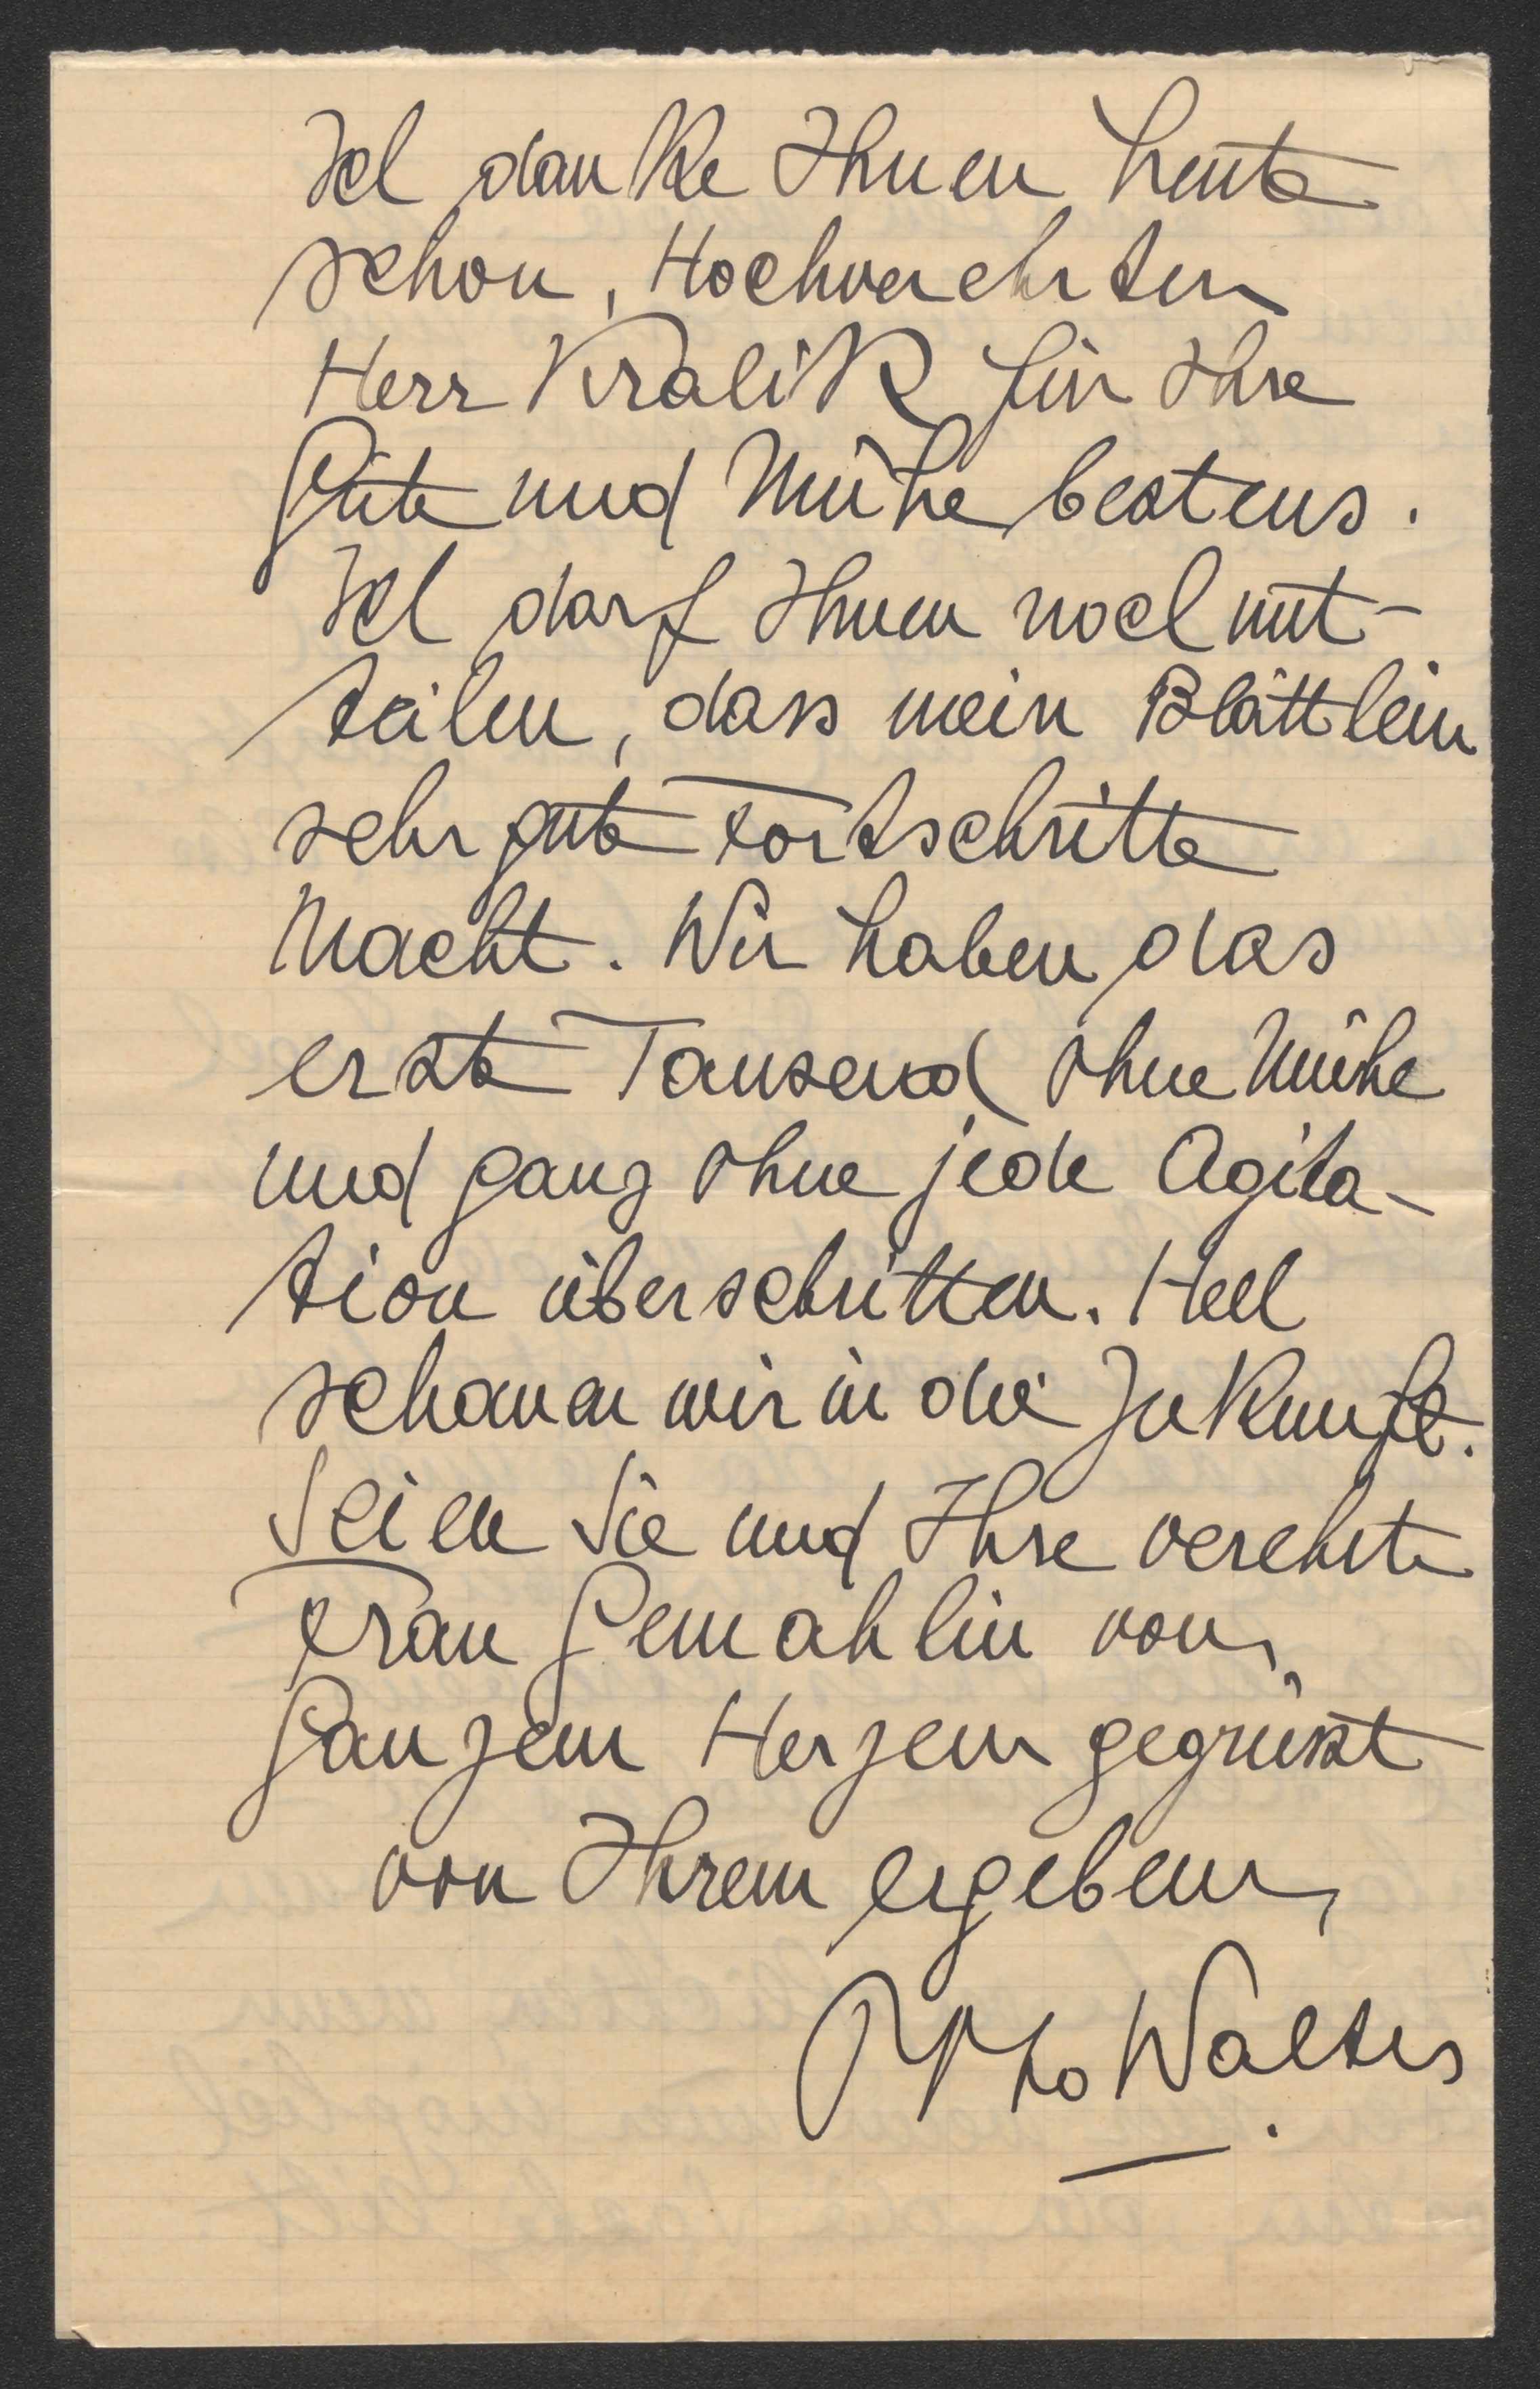 Ich danke Ihnen heute
schon, Hochverehrter
Herr Kralik für Ihre
Güte und Mühe bestens.
Ich darf Ihnen noch mit-
teilen, dass mein Blättlein
sehr gute Fortschritte
macht. Wir haben das
erste Tausend ohne Mühe
und ganz ohne jede Agita-
tion überschritten. Hell
schauen wir in die Zukunft.
Seien Sie und Ihre verehrte
Frau Gemahlin von
Ganzem Herzen gegrüsst
von Ihrem ergebenen
Otto Walter